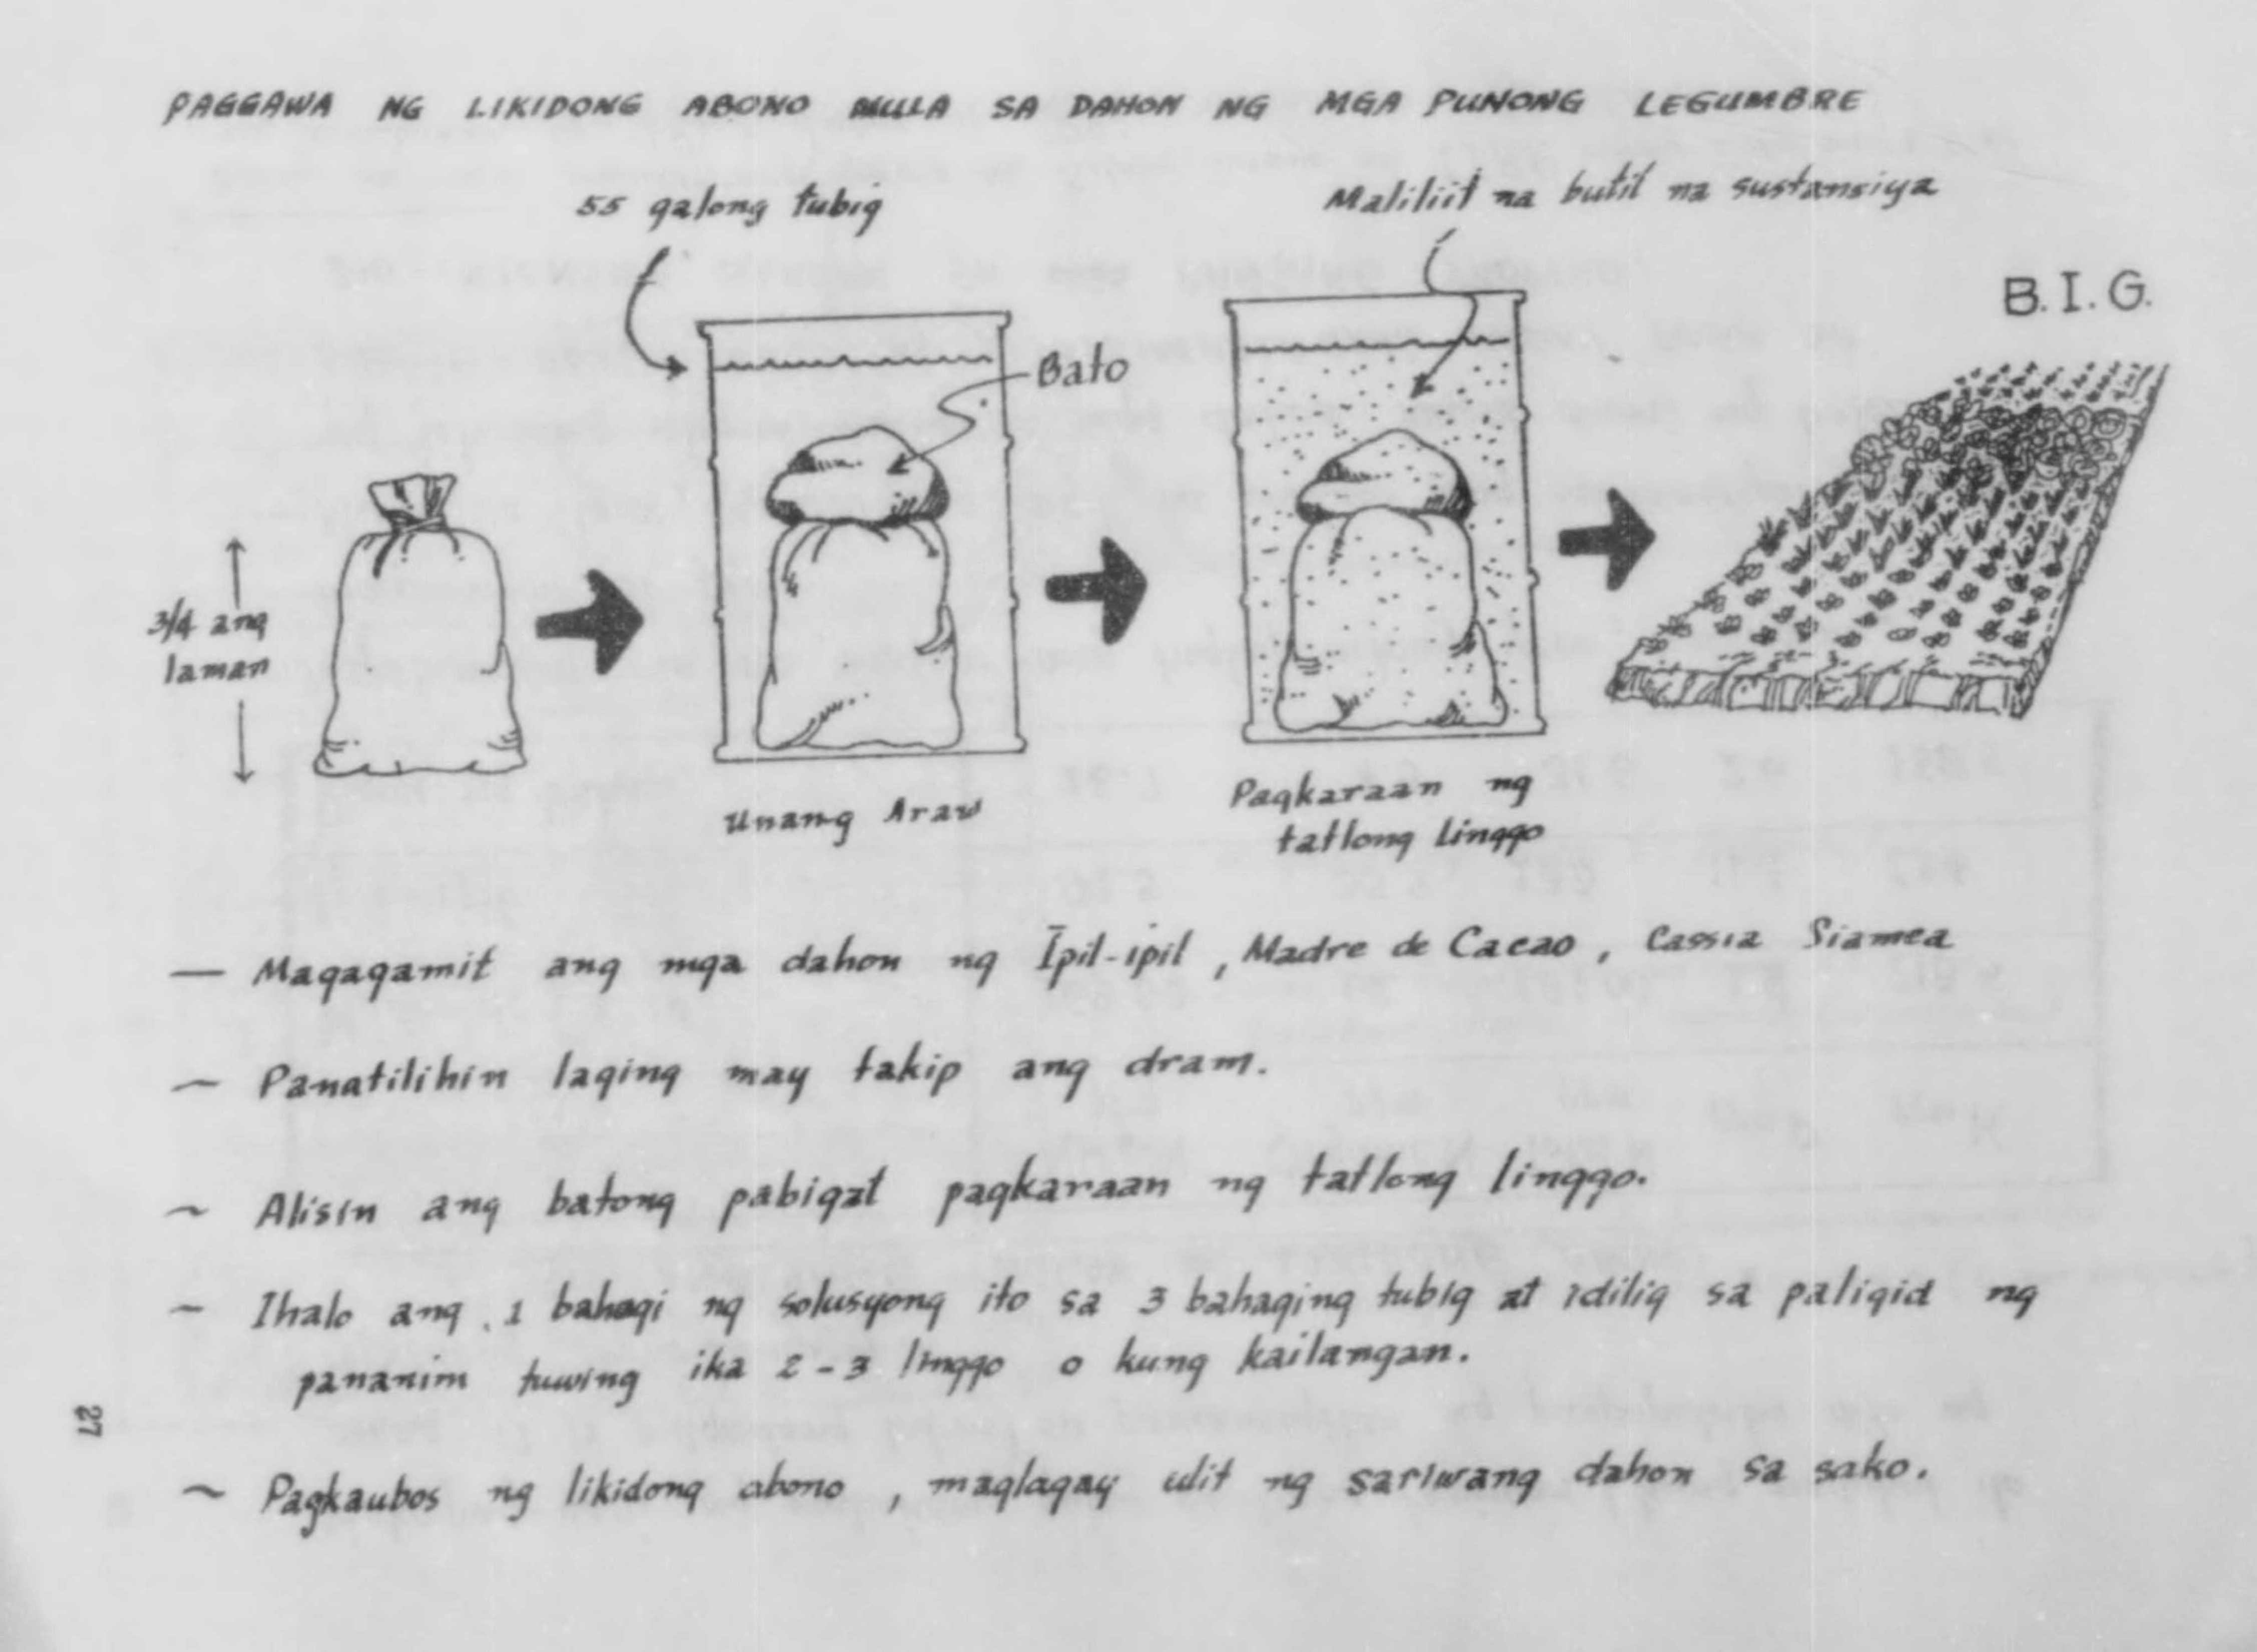 PAGGAWA NG LIKIDONG ABONO MULA SA DAHON NG MGA PUNONG LEGUMBRE
55 galong tubig
Maliliit na butil na sustansiya
B.I.G.
Bato
3/4 ang
laman
Unang Araw
Pagkaraan ng
tatlong linggo
— Magagamit ang mga dahon ng Ipil-ipil, Madre de Cacao, Cassia Siamea
— Panatilihin laging may takip ang dram.
— Alisin ang batong pabigat pagkaraan ng tatlong linggo.
— Ihalo ang 1 bahagi ng solusyong ito sa 3 bahaging tubig at idilig sa paligid ng
pananim tuwing ika 2-3 linggo o kung kailangan.
— Pagkaubos ng likidong abono, maglagay ulit ng sariwang dahon sa sako.
27